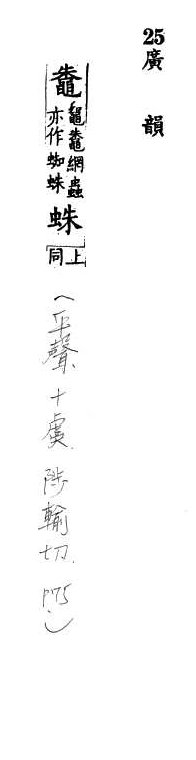 25廣韻
鼄鼅鼄網蟲亦作蜘蛛蛛上同
(平聲十虞陟輸切.P75.)